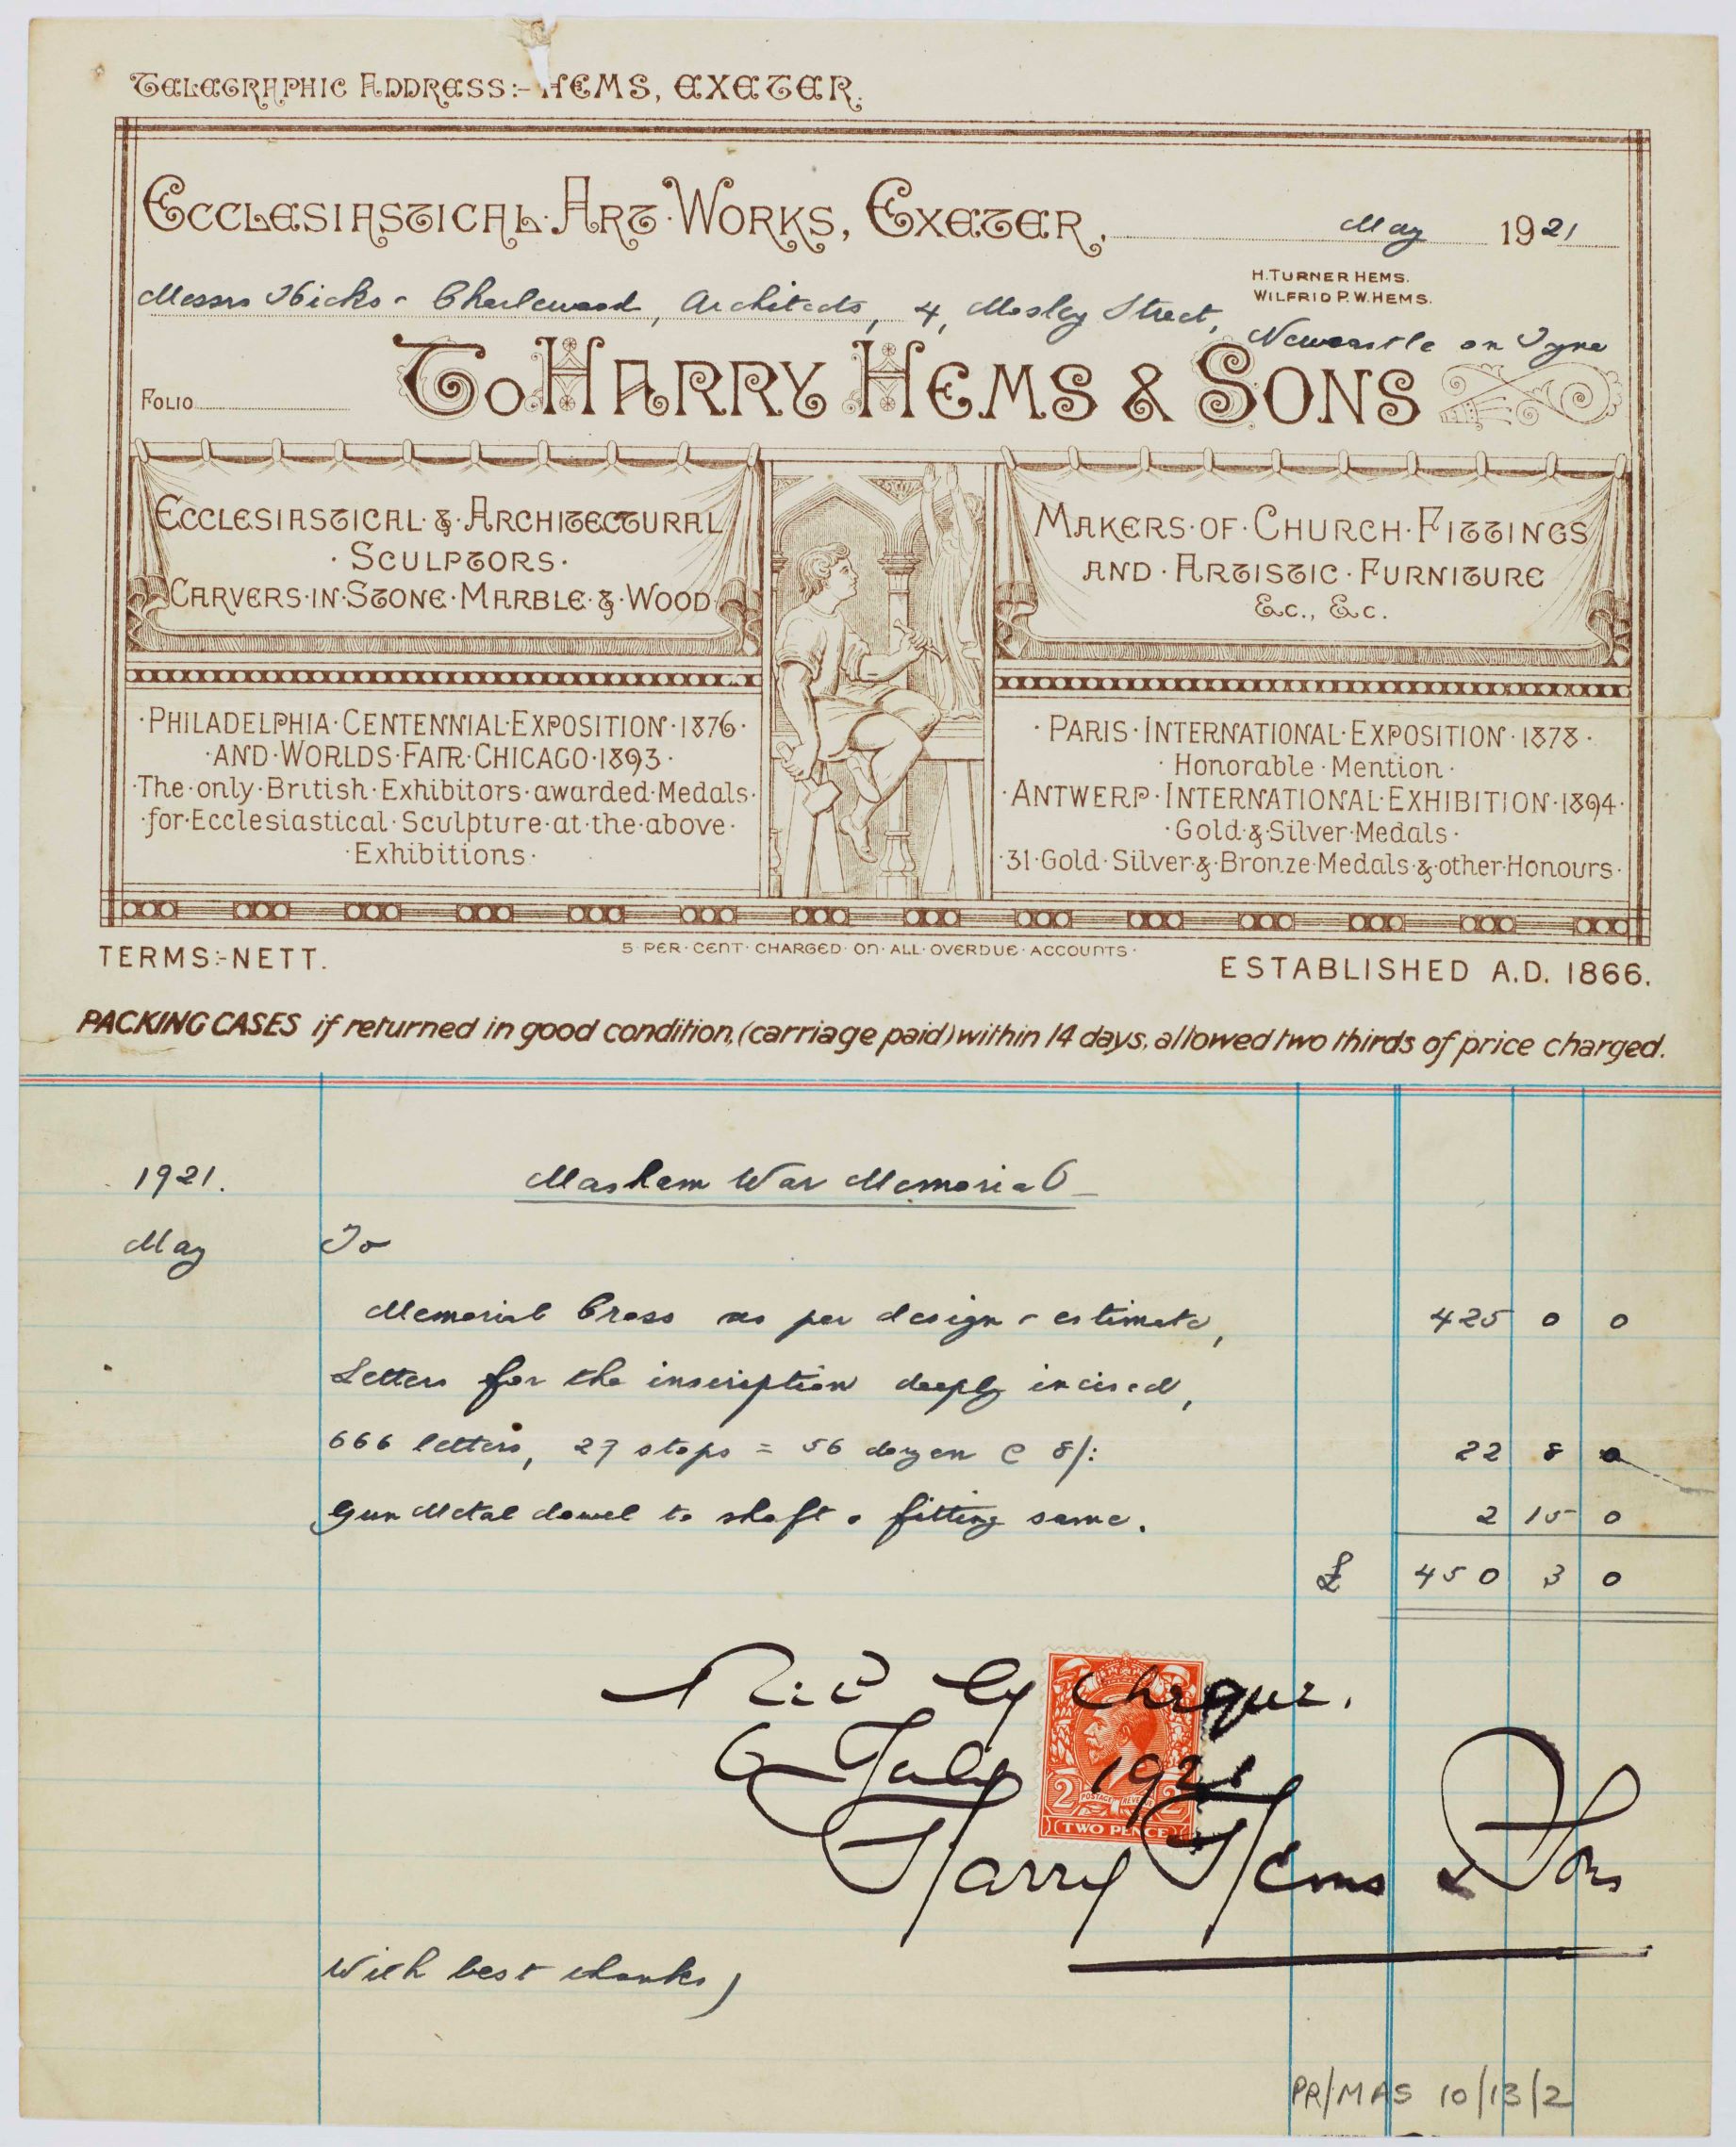 TELEGRAPHIC ADDRESS:- HEMS, EXETER.
ECCLESIASTICAL·ART·WORKS, EXETER, May 1921
H. TURNER HEMS.
WILFRID P. W. HEMS.
Messrs Hicks & Charlewood, Architects, 4, Mosley Street,
Newcastle on Tyne
FOLIO
To HARRY HEMS & SONS
ECCLESIASTICAL·&·ARCHITECTURAL
·SCULPTORS·
CARVERS·IN·STONE·MARBLE·&·WOOD
MAKERS·OF·CHURCH·FITTINGS
AND·ARTISTIC·FURNITURE
&c., &c.
·PHILADELPHIA·CENTENNIAL·EXPOSITION·1876·
·AND·WORLDS·FAIR·CHICAGO·1893·
·The·only·British·Exhibitors·awarded·Medals·
·for·Ecclesiastical·Sculpture·at·the·above·
·Exhibitions·
·PARIS·INTERNATIONAL·EXPOSITION·1878·
·Honorable·Mention·
·ANTWERP·INTERNATIONAL·EXHIBITION·1894·
·Gold·&·Silver·Medals·
·31·Gold·Silver·&·Bronze·Medals·&·other·Honours·
TERMS:-NETT.
5·PER·CENT·CHARGED·ON·ALL·OVERDUE·ACCOUNTS·
ESTABLISHED A.D. 1866.
PACKING CASES if returned in good condition, (carriage paid) within 14 days, allowed two thirds of price charged.
1921. Masham War Memorial
May To
Memorial Cross as per design & estimate, 425 0 0
Letters for the inscription deeply incised,
666 letters, 27 stops = 56 dozen @ 8/: 22 8 0
Gun Metal dowel to shaft & fitting same. 2 15 0
£ 450 3 0
Rec'd by cheque.
6 July 1921
2 POSTAGE REVENUE 2
TWO PENCE
Harry Hems & Sons
With best thanks,
PR/MAS 10/13/2